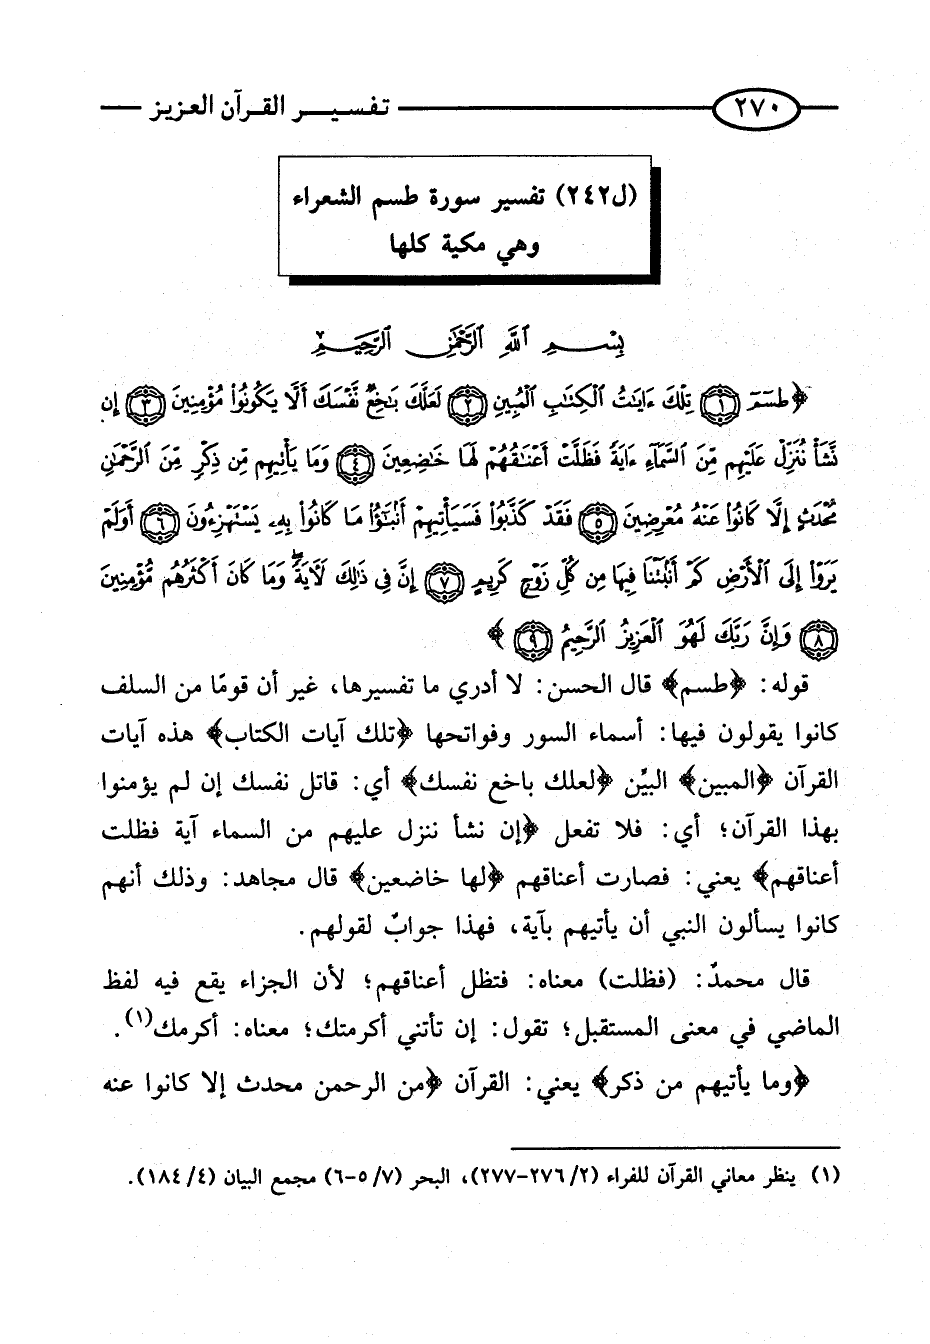 ٢٧٠ تفسير القرآن العزيز
(ل٢٤٢) تفسير سورة طسم الشعراء
وهي مكية كلها
بِسْمِ اللَّهِ الرَّحْمَٰنِ الرَّحِيمِ
﴿طسٓمٓ ١ تِلْكَ ءَايَٰتُ ٱلْكِتَٰبِ ٱلْمُبِينِ ٢ لَعَلَّكَ بَٰخِعٌ نَّفْسَكَ أَلَّا يَكُونُوا۟ مُؤْمِنِينَ ٣ إِن
نَّشَأْ نُنَزِّلْ عَلَيْهِم مِّنَ ٱلسَّمَآءِ ءَايَةً فَظَلَّتْ أَعْنَٰقُهُمْ لَهَا خَٰضِعِينَ ٤ وَمَا يَأْتِيهِم مِّن ذِكْرٍ مِّنَ ٱلرَّحْمَٰنِ
مُحْدَثٍ إِلَّا كَانُوا۟ عَنْهُ مُعْرِضِينَ ٥ فَقَدْ كَذَّبُوا۟ فَسَيَأْتِيهِمْ أَنۢبَٰٓؤُا۟ مَا كَانُوا۟ بِهِۦ يَسْتَهْزِءُونَ ٦ أَوَلَمْ
يَرَوْا۟ إِلَى ٱلْأَرْضِ كَمْ أَنۢبَتْنَا فِيهَا مِن كُلِّ زَوْجٍ كَرِيمٍ ٧ إِنَّ فِى ذَٰلِكَ لَءَايَةً ۖ وَمَا كَانَ أَكْثَرُهُم مُّؤْمِنِينَ
٨ وَإِنَّ رَبَّكَ لَهُوَ ٱلْعَزِيزُ ٱلرَّحِيمُ ٩﴾
قوله: ﴿طسم﴾ قال الحسن: لا أدري ما تفسيرها، غير أن قومًا من السلف
كانوا يقولون فيها: أسماء السور وفواتحها ﴿تلك آيات الكتاب﴾ هذه آيات
القرآن ﴿المبين﴾ البيِّن ﴿لعلك باخع نفسك﴾ أي: قاتل نفسك إن لم يؤمنوا
بهذا القرآن؛ أي: فلا تفعل ﴿إن نشأ ننزل عليهم من السماء آية فظلت
أعناقهم﴾ يعني: فصارت أعناقهم ﴿لها خاضعين﴾ قال مجاهد: وذلك أنهم
كانوا يسألون النبي أن يأتيهم بآية، فهذا جوابٌ لقولهم.
قال محمدٌ: (فظلت) معناه: فتظل أعناقهم؛ لأن الجزاء يقع فيه لفظ
الماضي في معنى المستقبل؛ تقول: إن تأتني أكرمتك؛ معناه: أكرمك(١).
﴿وما يأتيهم من ذكر﴾ يعني: القرآن ﴿من الرحمن محدث إلا كانوا عنه
(١) ينظر معاني القرآن للفراء (٢/ ٢٧٦-٢٧٧)، البحر (٧/ ٥-٦) مجمع البيان (٤/ ١٨٤).